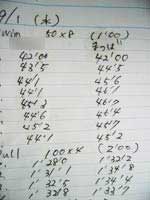 9/1 (水)
Swim 50×8 (1'00)
42'00 42'00
43'5 44'5
44'1 46'6
44'1 46'1
45'2 46'7
44'6 46'4
45'2 44'7
44'1 45'2
Pull 100×4 (2'00)
1'28'0 1'32'2
1'31'1 1'34'8
1'32'5 1'34'4
1'32'8 1'33'7